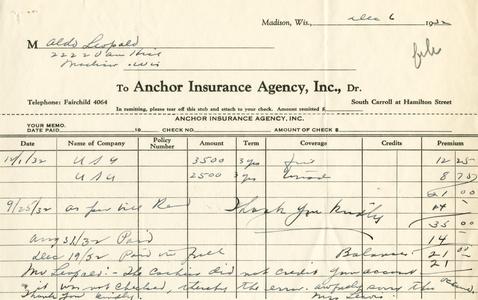 Madison, Wis., Dec 6 1932
M Aldo Leopold
2222 Van Hise
Madison Wis
file
To Anchor Insurance Agency, Inc., Dr.
Telephone: Fairchild 4064 South Carroll at Hamilton Street
In remitting, please tear off this stub and attach to your check. Amount remitted $
ANCHOR INSURANCE AGENCY, INC.
YOUR MEMO.
DATE PAID 19 CHECK NO. AMOUNT OF CHECK $
Date Name of Company Policy Number Amount Term Coverage Credits Premium
10/1/32 USG 3500 3 yrs Fire 12 25
USG 2500 3 yrs 8 75
21 00
9/25/32 as per bill Rend 14
Thank You Kindly
35 00
Aug 31/32 Paid 14
Dec 19/32 Paid in Full Balance 21 00
21
Mr Leopold:- The cashier did not credit your account
it was not checked, thereby the error. Awfully sorry this
Thank you kindly. Mrs Lewis